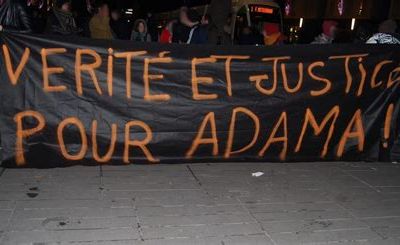 VERiTÉ ET JUSTiCE
POUR ADAMA !